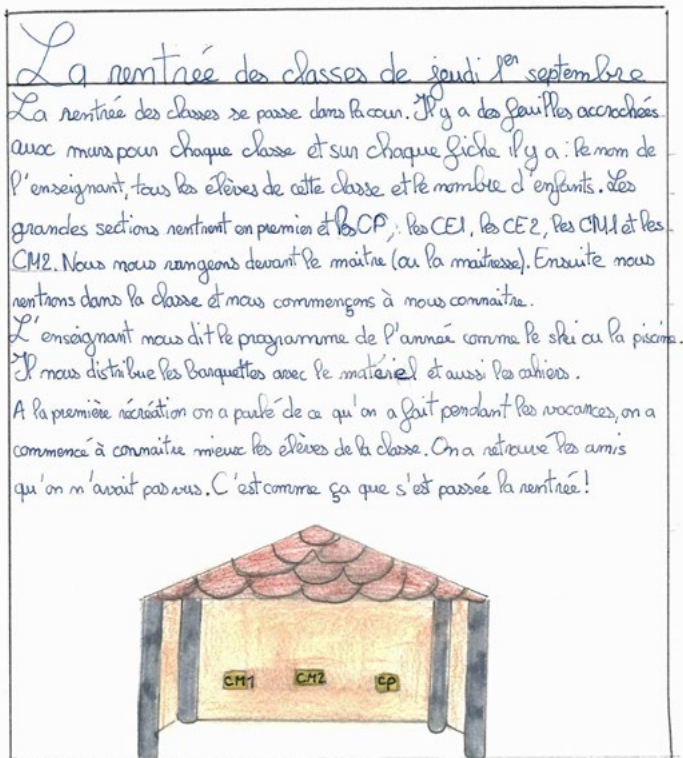 La rentrée des classes de jeudi 1er septembre
La rentrée des classes se passe dans la cour. Il y a des feuilles accrochées
aux murs pour chaque classe et sur chaque fiche il y a : le nom de
l'enseignant, tous les élèves de cette classe et le nombre d'enfants. Les
grandes sections rentrent en premier et les CP, les CE1, les CE2, les CM1 et les
CM2. Nous nous rangeons devant le maitre (ou la maitresse). Ensuite nous
rentrons dans la classe et nous commençons à nous connaitre.
L'enseignant nous dit le programme de l'année comme le ski ou la piscine.
Il nous distribue les barquettes avec le matériel et aussi les cahiers.
A la première récréation on a parlé de ce qu'on a fait pendant les vacances, on a
commencé à connaitre mieux les élèves de la classe. On a retrouvé les amis
qu'on n'avait pas vus. C'est comme ça que s'est passée la rentrée !
CM1 CM2 CP